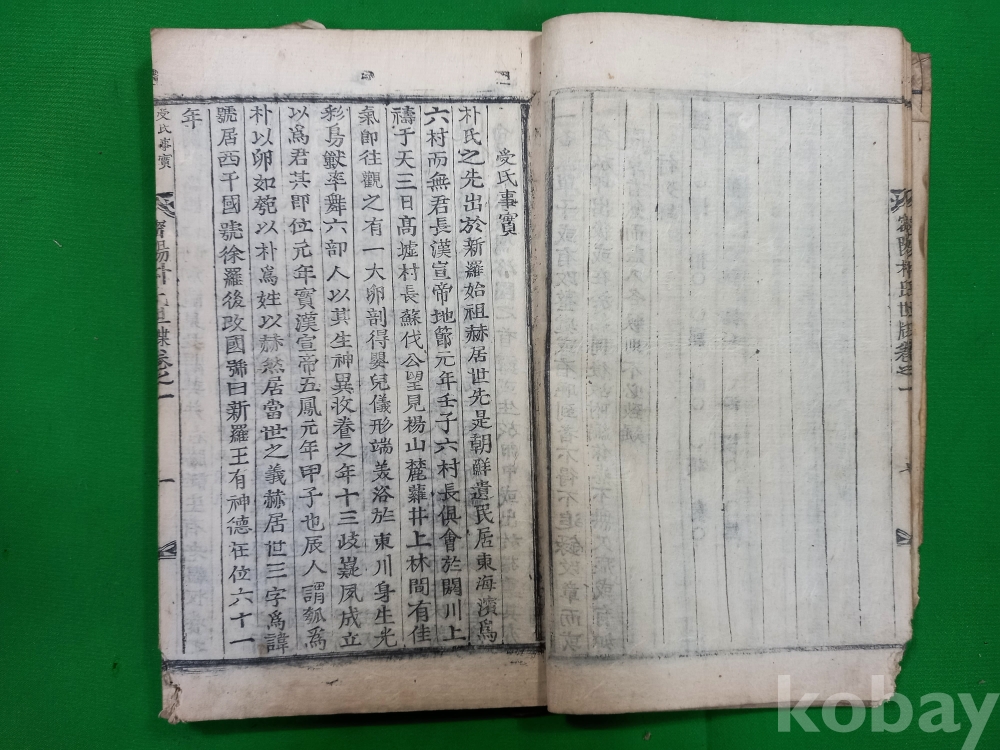 密陽朴氏世牒卷之一
受氏事實
朴氏之先出於新羅始祖赫居世先是朝鮮遺民居東海濱爲
六村而無君長漢宣帝地節元年壬子六村長俱會於閼川上
禱于天三日髙墟村長蘇伐公望見楊山麓蘿井上林間有佳
氣卽往觀之有一大卵剖得嬰兒儀形端美浴於東川身生光
彩鳥獸率舞六部人以其生神異收養之年十三歧嶷夙成立
以爲君其卽位元年實漢宣帝五鳳元年甲子也辰人謂瓠爲
朴以卵如瓠以朴爲姓以赫然居當世之義赫居世三字爲諱
號居西干國號徐羅後改國號曰新羅王有神德在位六十一
年
受氏事實
密陽朴氏世牒卷之一
一
kobay